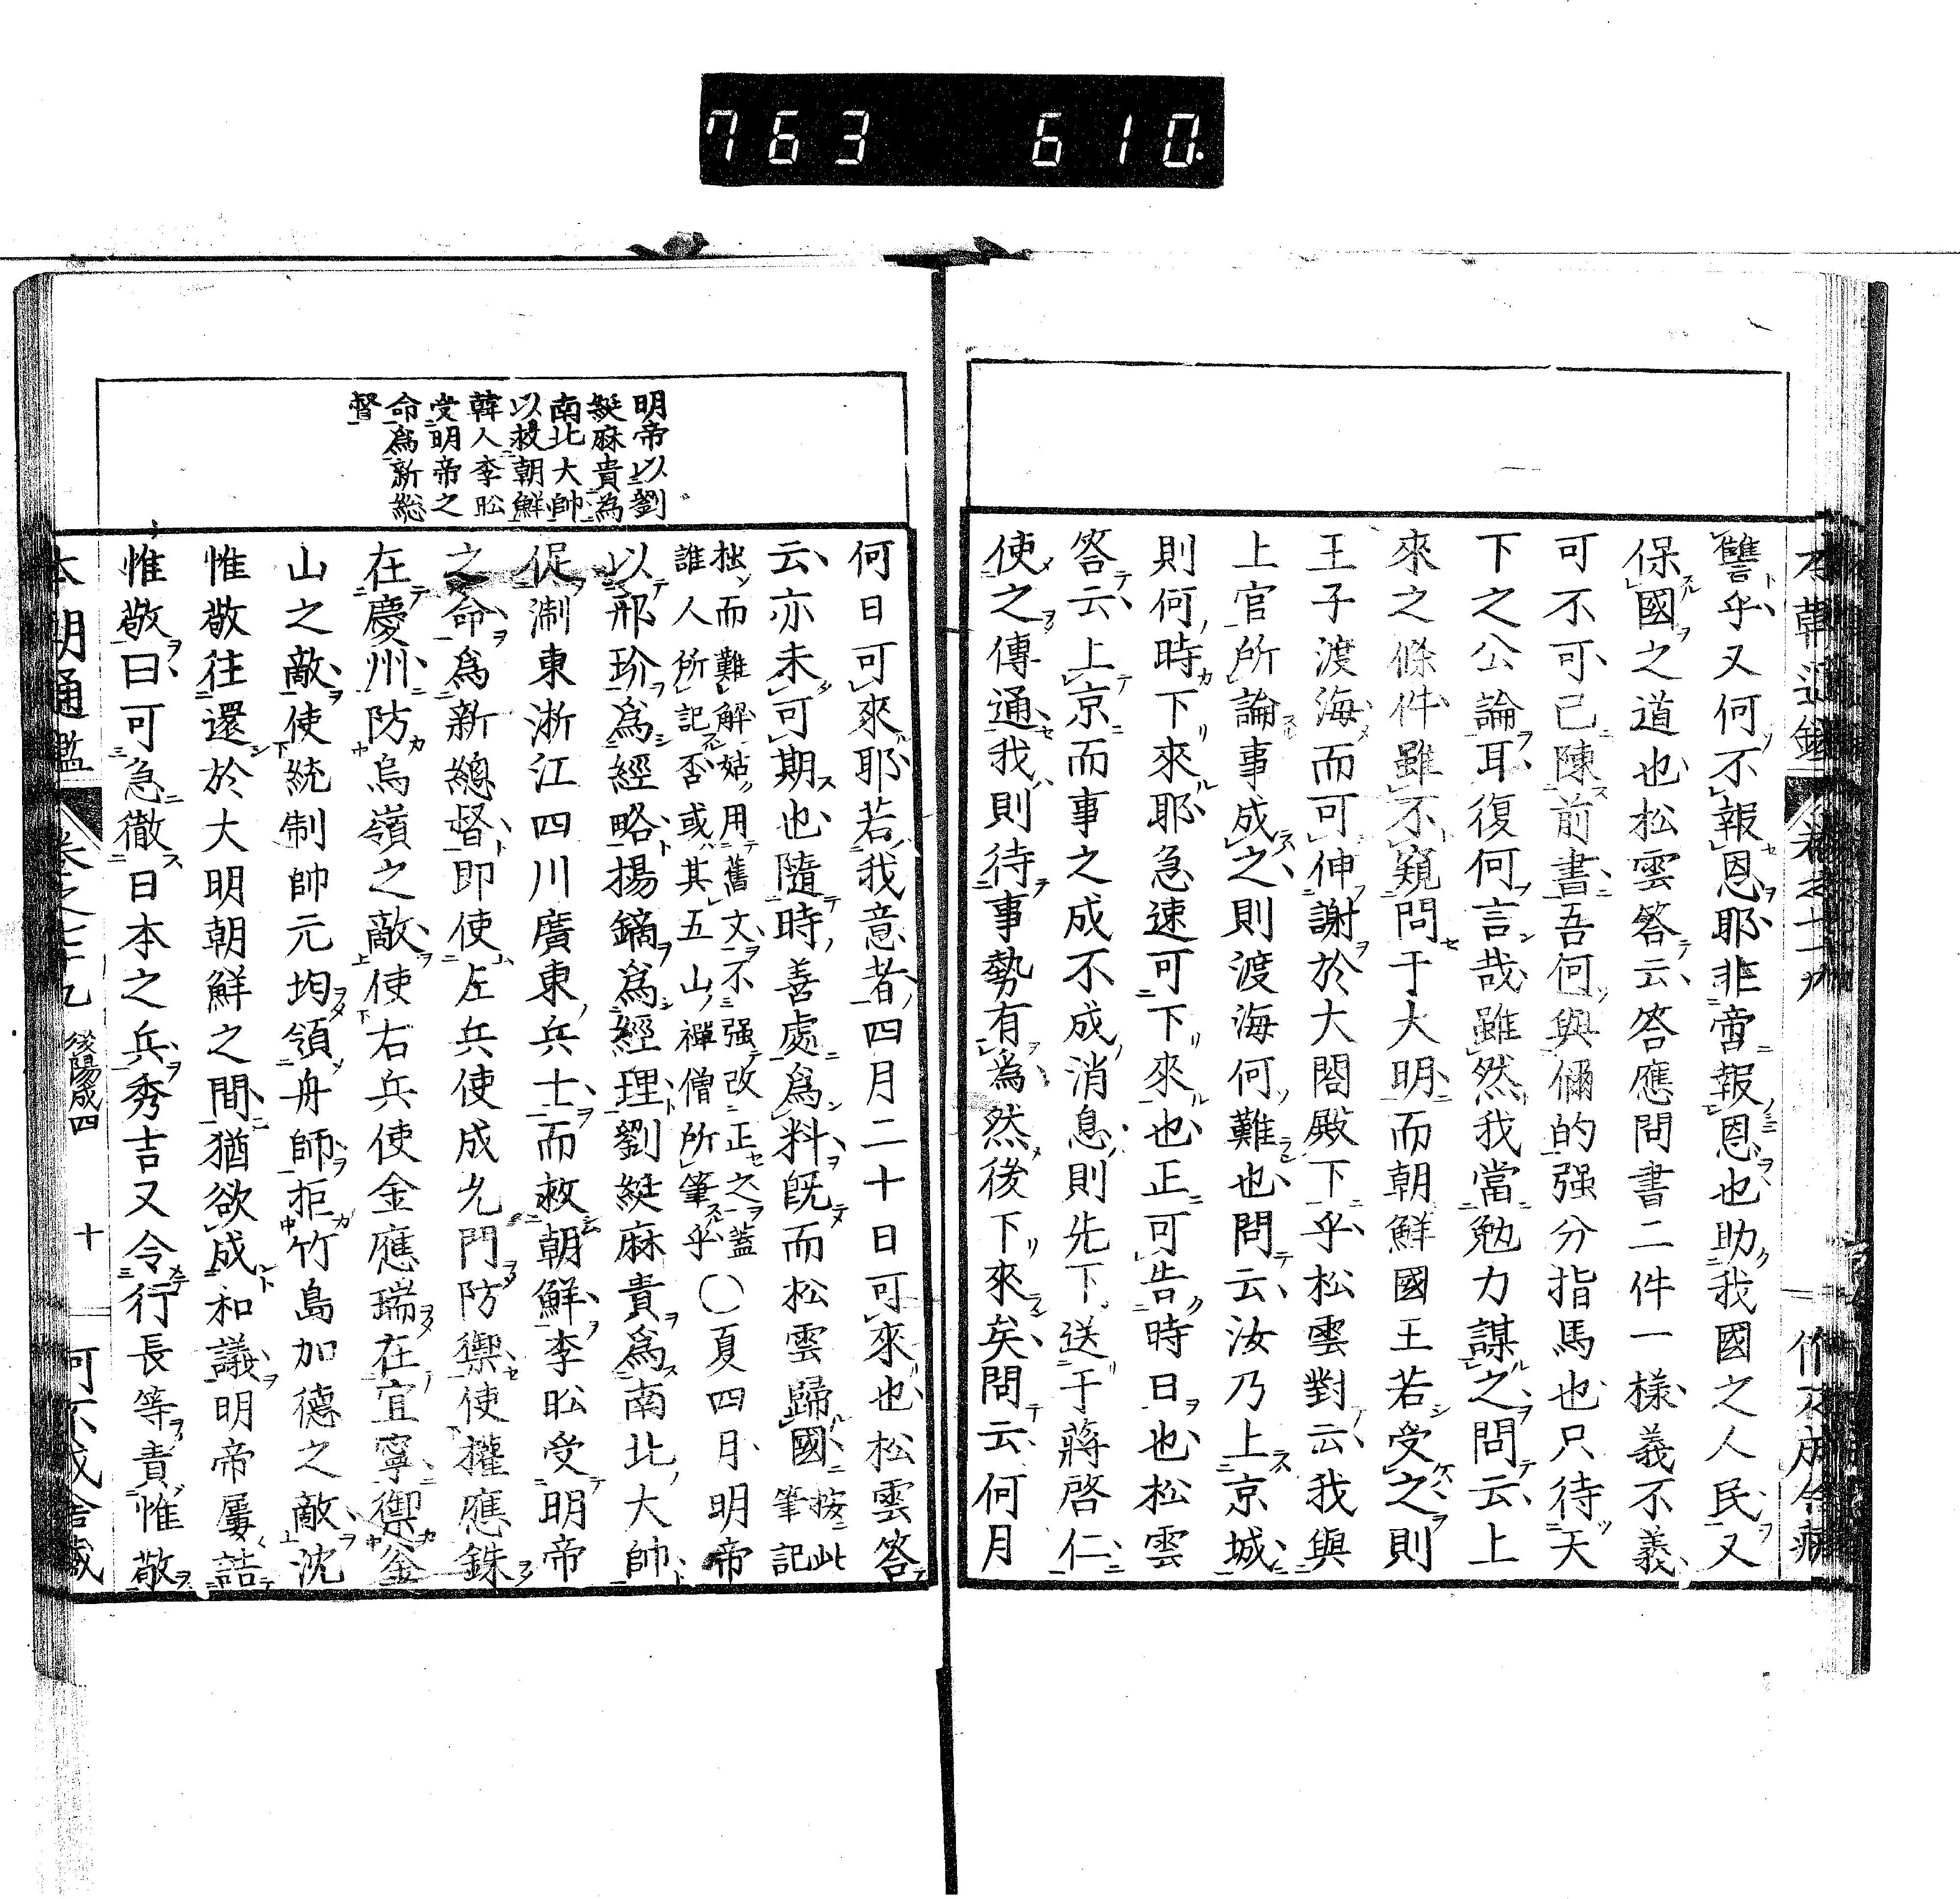 763 610.
讐乎又何不報恩耶非啻報恩也助我國之人民又
保國之道也松雲答云答應問書二件一樣義不義
可不可已陳前書吾何與儞的强分指馬也只待天
下之公論耳復何言哉雖然我當勉力謀之問云上
來之條件雖不窺問于大明而朝鮮國王若受之則
王子渡海而可伸謝於大閤殿下乎松雲對云我與
上官所論事成之則渡海何難也問云汝乃上京城
則何時下來耶急速可下來也正可告時日也松雲
答云上京而事之成不成消息則先下送于蔣啓仁
使之傳通我則待事勢有爲然後下來矣問云何月
明帝以劉
綎麻貴為
南北大帥
以救朝鮮
韓人李昖
受明帝之
命爲新総
督
何日可來耶若我意者四月二十日可來也松雲答
云亦未可期也隨時善處爲料既而松雲歸國按此筆記
拙而難解姑用舊文不强改正之蓋
誰人所記否或其五山禪僧所筆乎〇夏四月明帝
以邢玠爲經略揚鎬爲經理劉綎麻貴爲南北大帥
促淛東浙江四川廣東兵士而救朝鮮李昖受明帝
之命爲新總督即使左兵使成允門防禦使權應銖
在慶州防烏嶺之敵使右兵使金應瑞在宜寧禦釜
山之敵使統制帥元均領舟師拒竹島加德之敵沈
惟敬往還於大明朝鮮之間猶欲成和議明帝屢詰
惟敬曰可急徹日本之兵秀吉又令行長等責惟敬
本朝通鑑 卷之七十九 後陽成四 十